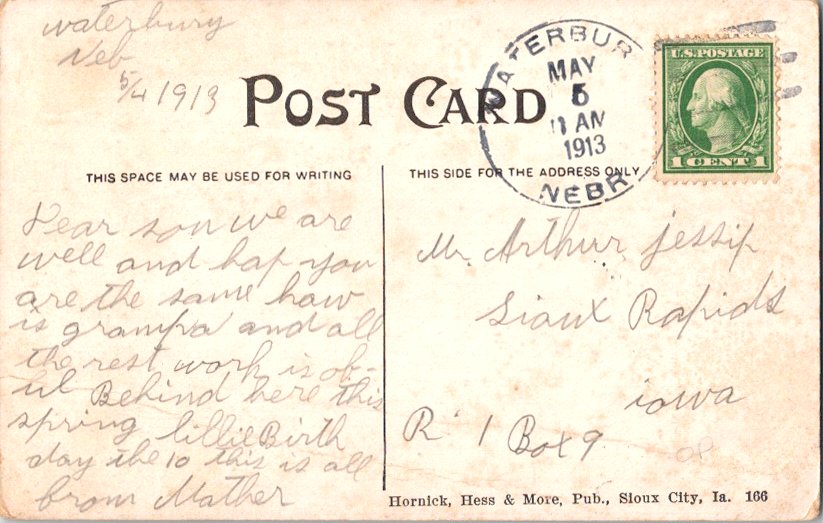 waterbury
Neb
5/4 1913
POST CARD
WATERBUR
MAY
5
AM
1913
NEBR
U.S. POSTAGE
1 CENT 1
THIS SPACE MAY BE USED FOR WRITING
THIS SIDE FOR THE ADDRESS ONLY
Dear son we are
well and hap you
are the same how
is grampa and all
the rest work is of-
ul Behind here this
spring lillie Birth
day the 10 this is all
from Mather
Mr. Arthur jessip
Sioux Rapids
iowa
R. 1 Box 9
Hornick, Hess & More, Pub., Sioux City, Ia. 166